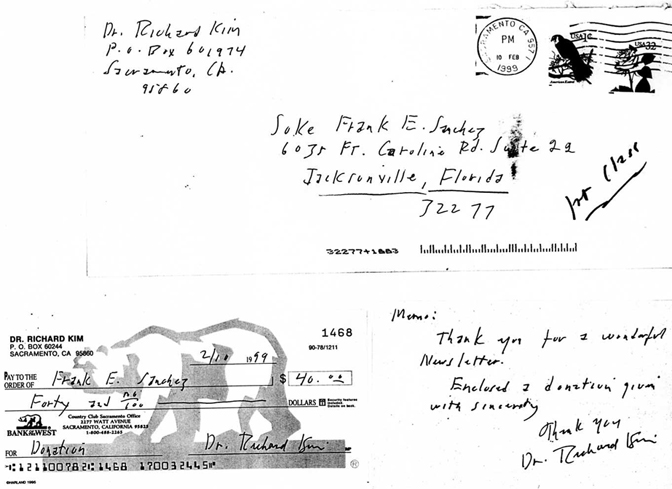 Dr. Richard Kim
P.O. Box 601974
Sacramento, CA.
95860
SACRAMENTO CA 9571
PM
10 FEB
1999
USA1c
American Kestrel
USA 32
Soke Frank E. Sanchez
6035 Ft. Caroline Rd. Suite 22
Jacksonville, Florida
32277
1st Class
32277+1883
DR. RICHARD KIM
P. O. BOX 60244
SACRAMENTO, CA 95860
1468
90-78/1211
2/10 1999
PAY TO THE
ORDER OF Frank E. Sanchez $ 40.00
Forty and no/100 DOLLARS
Security features
included.
Details on back.
Country Club Sacramento Office
2277 WATT AVENUE
SACRAMENTO, CALIFORNIA 95825
1-800-488-2265
BANK OF THE WEST
FOR Donation Dr. Richard Kim
⑆121100782⑆1468 170032445⑈
Memo:
Thank you for a wonderful
Newsletter.
Enclosed a donation given
with sincerity
Thank You
Dr. Richard Kim